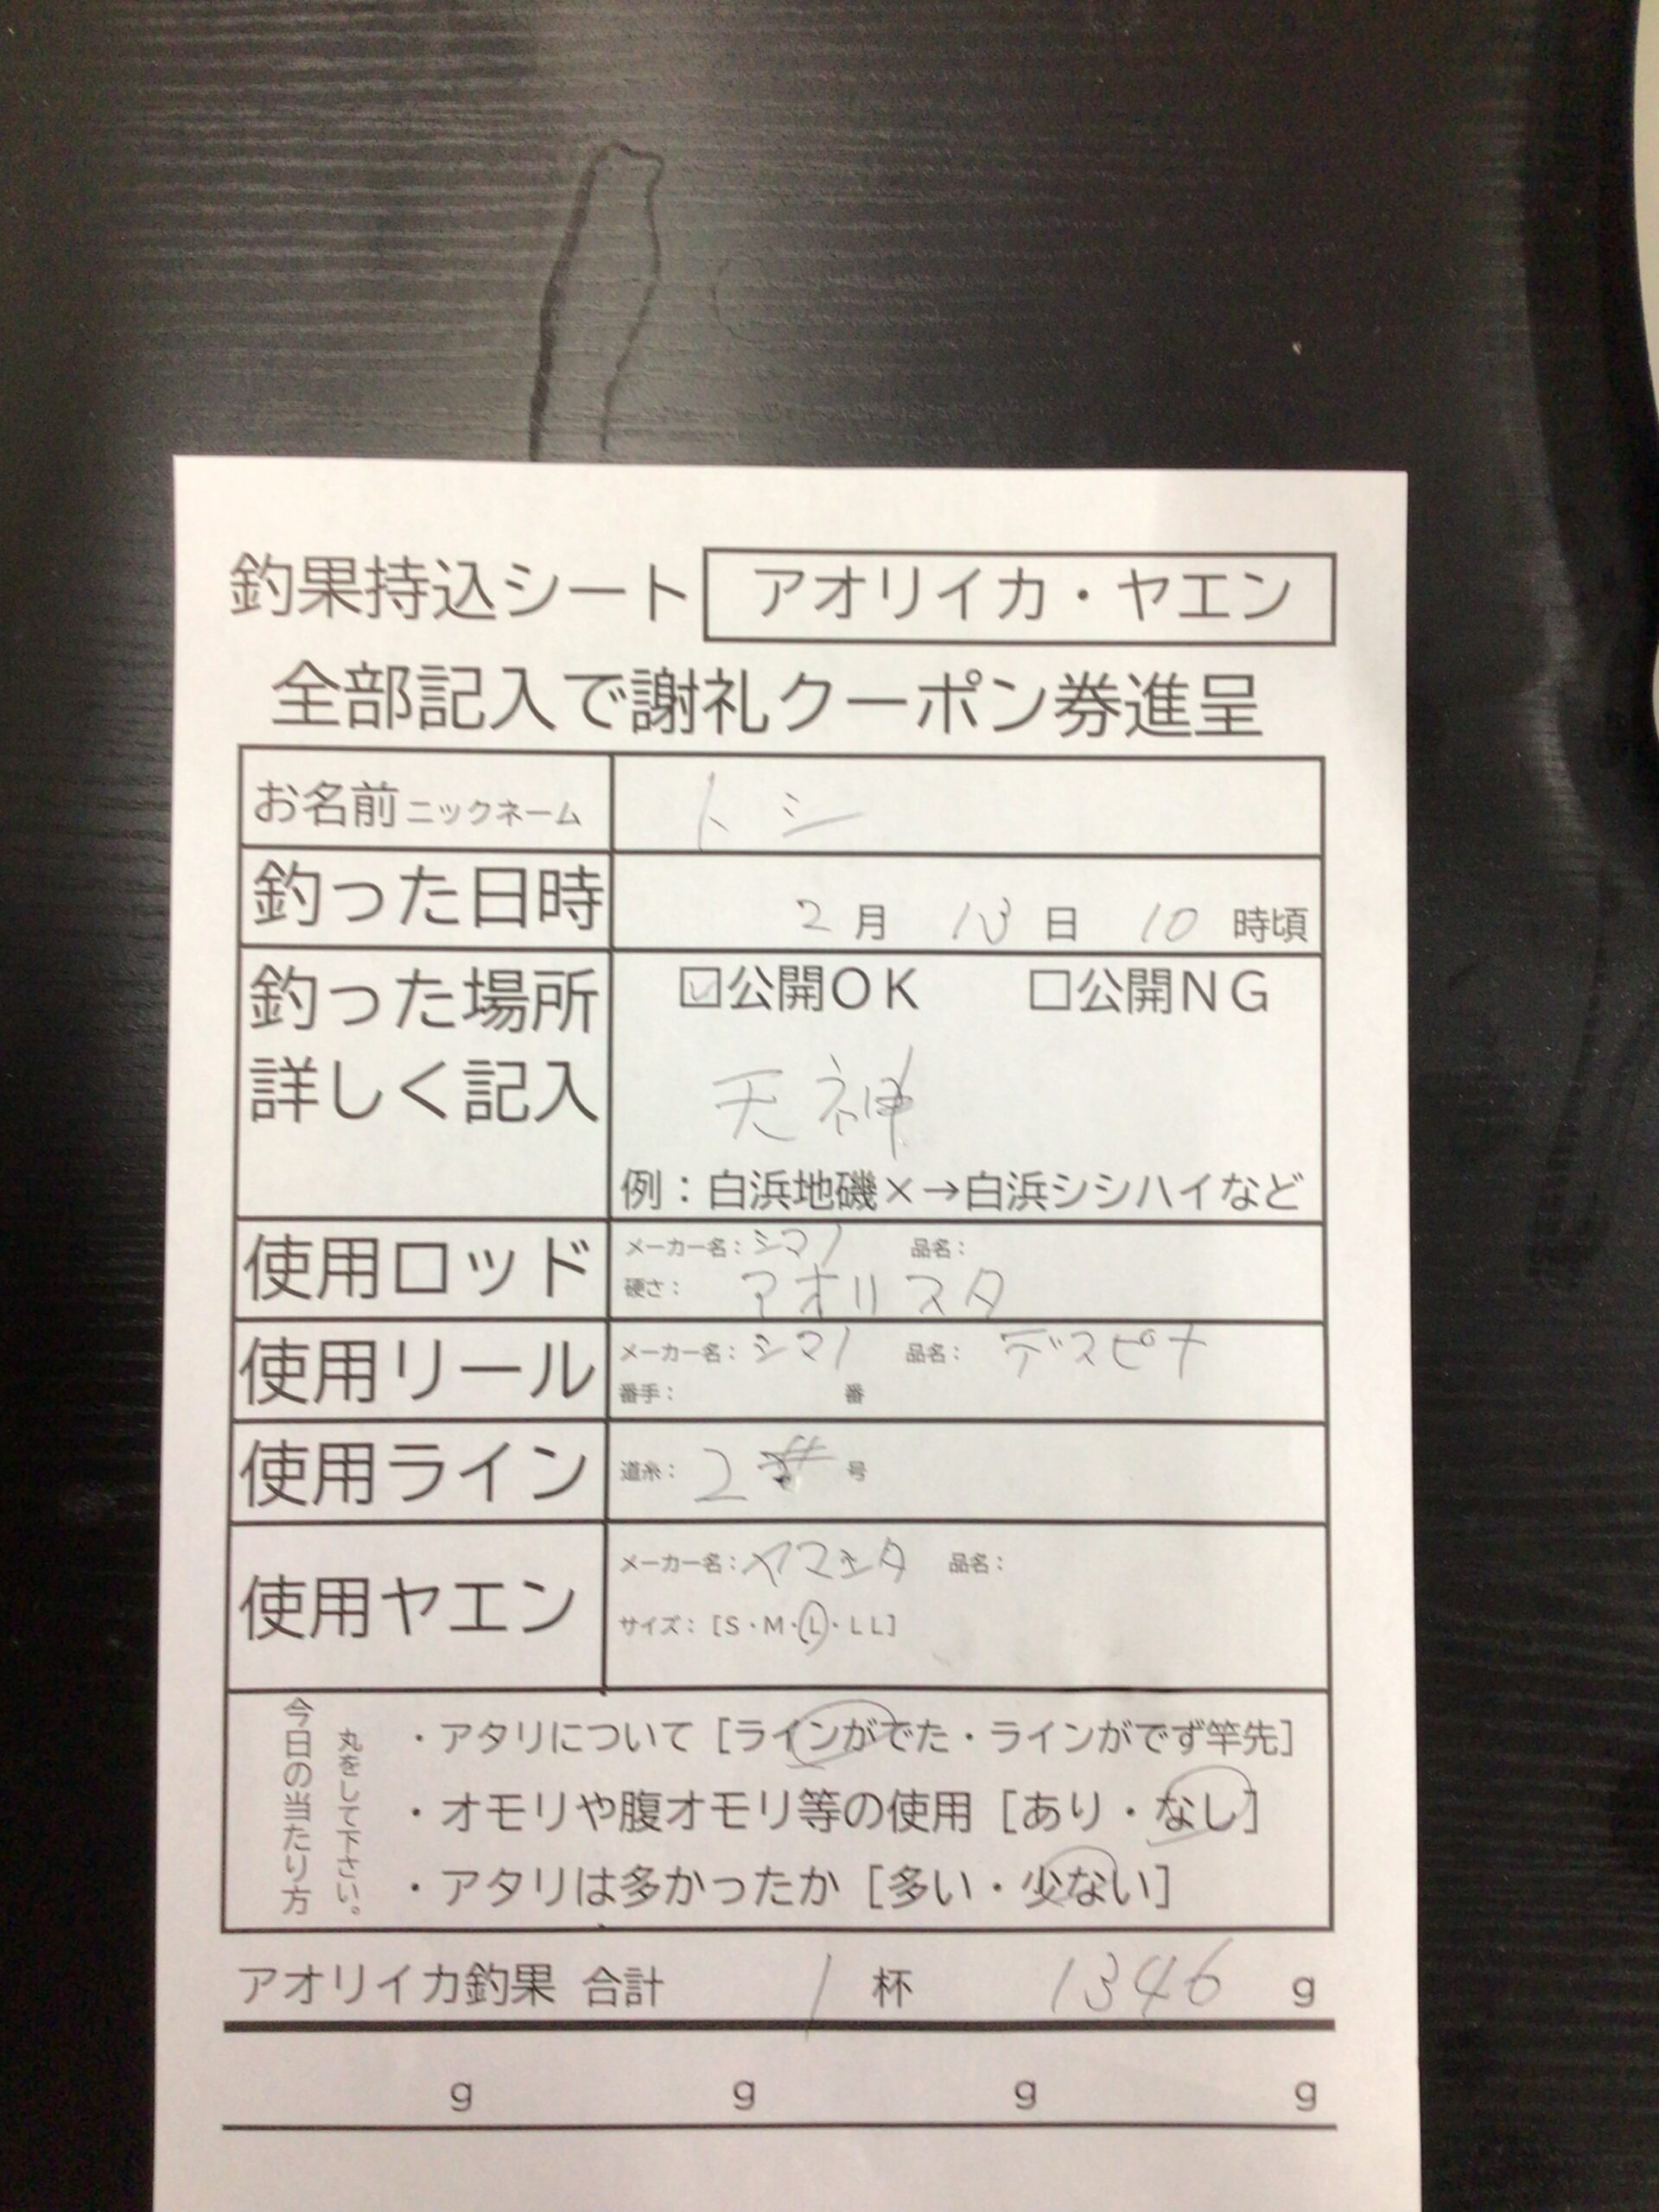 釣果持込シート アオリイカ・ヤエン
全部記入で謝礼クーポン券進呈
お名前 ニックネーム トシ
釣った日時 2月 13日 10時頃
釣った場所 ☑公開OK □公開NG
詳しく記入 天神
例：白浜地磯×→白浜シシハイなど
使用ロッド メーカー名：シマノ 品名：
硬さ： アオリスタ
使用リール メーカー名：シマノ 品名： デスピナ
番手： 番
使用ライン 道糸： 2 号
使用ヤエン メーカー名： 品名：
サイズ：［S・M・L・LL］
今日の当たり方
丸をして下さい。
・アタリについて［ラインがでた・ラインがでず竿先］
・オモリや腹オモリ等の使用［あり・なし］
・アタリは多かったか［多い・少ない］
アオリイカ釣果 合計 1 杯 1346 g
g g g g